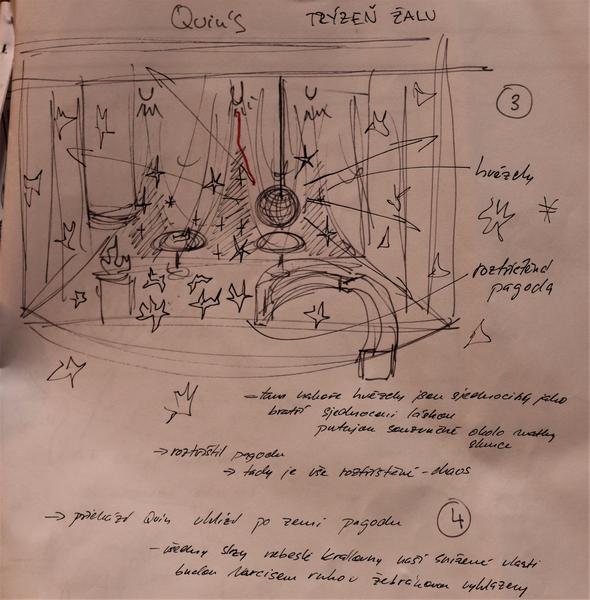 Quin's TRÝZEŇ ŽALU
③
hvězdy
roztříštěná
pagoda
- tam nahoře hvězdy jsou sjednocitelé jako
bratři sjednoceni láskou
putujou souzvučně okolo matky
slunce
→ roztříštil pagodu
→ tady je vše roztříštěné - chaos
④
→ přichází Quin uhlízí po zemi pagodu
- všechny slzy nebeské královny naší snížené vlasti
budou Narcisem rukou žebrákovou vyhlazeny